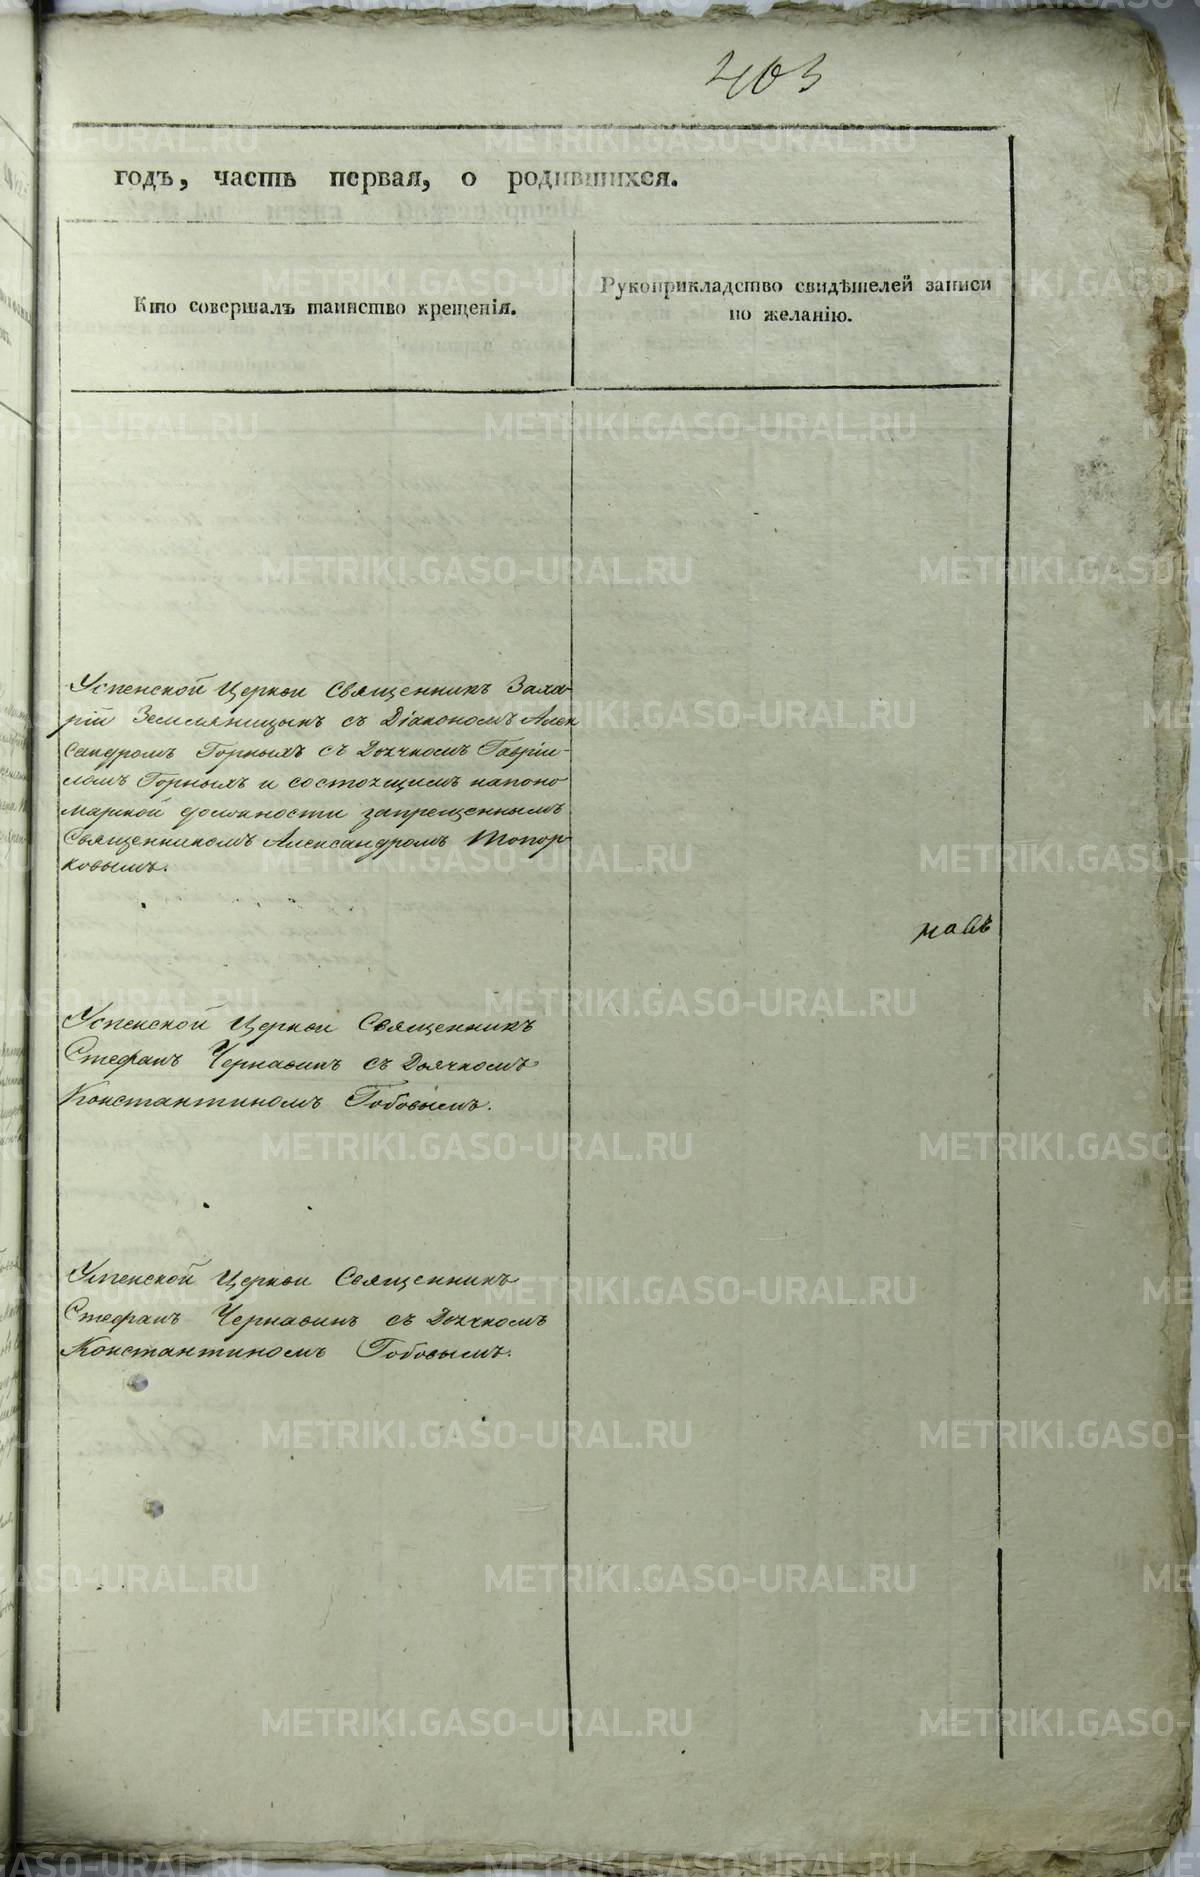 403
годъ, часть первая, о родившихся.
Кто совершалъ таинство крещенія.
Рукоприкладство свидѣтелей записи
по желанію.
Успенской Церкви Священникъ Заха-
рій Земляницынъ съ Діакономъ Алек
сандромъ Горныхъ съ Дьячкомъ Гаврі-
ломъ Горныхъ и состоящимъ на поно
марской должности запрещеннымъ
Священникомъ Александромъ Топор-
ковымъ.
Успенской Церкви Священникъ
Стефанъ Чернавинъ съ Дьячкомъ
Константиномъ Гобовымъ.
Успенской Церкви Священникъ
Стефанъ Чернавинъ съ Дьячкомъ
Константиномъ Гобовымъ.
METRIKI.GASO-URAL.RU